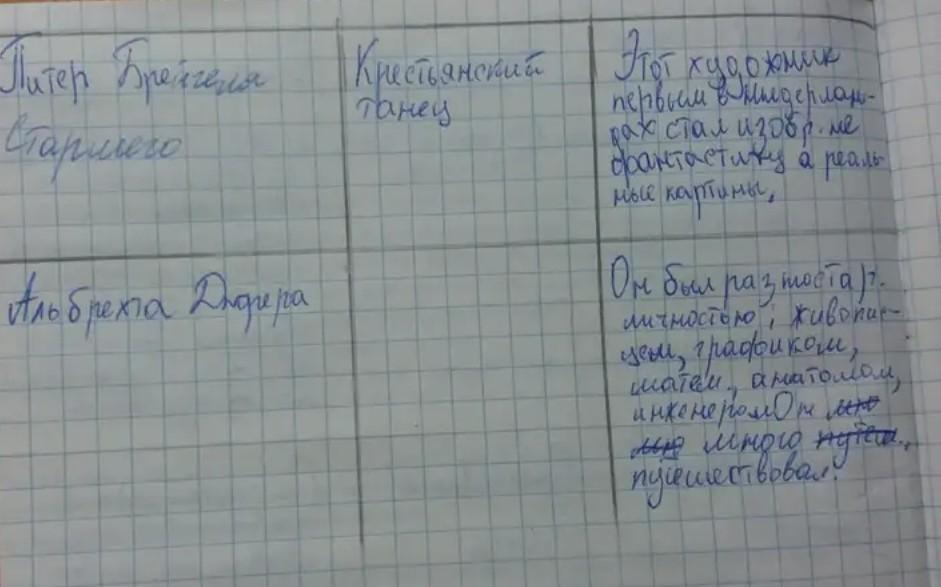 Питер Брейгеля
Старшего
Крестьянский
танец
Этот художник
первым в Нидерлан-
дах стал изобр. не
фантастику а реаль-
ные картины.
Альбрехта Дюрера
Он был разностар.
личностью; живопис-
цем, графиком,
матем., анатомом,
инженером Он мно
мно много путеш.,
путешествовал.